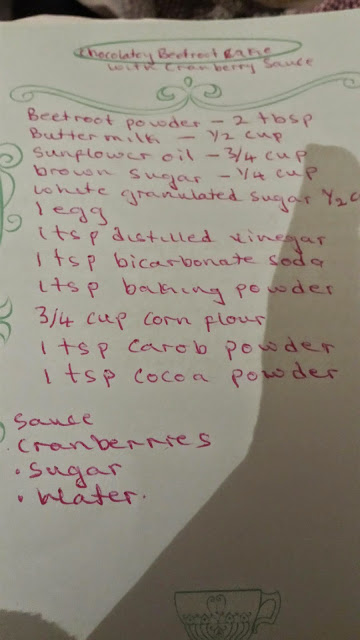 Chocolatey Beetroot Cake
with Cranberry Sauce
Beetroot powder - 2 tbsp
Buttermilk - 1/2 cup
sunflower oil - 3/4 cup
brown sugar - 1/4 cup
white granulated sugar 1/2 c
1 egg
1 tsp distilled vinegar
1 tsp bicarbonate soda
1 tsp baking powder
3/4 cup corn flour
1 tsp carob powder
1 tsp cocoa powder
Sauce
· cranberries
· sugar
· Water.